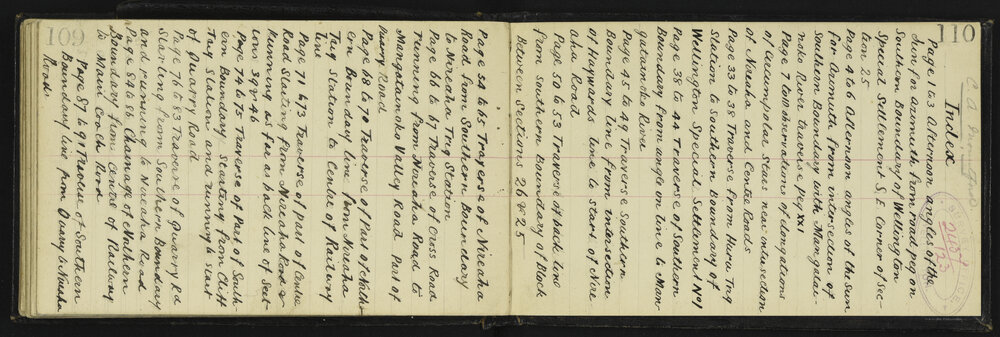 110
Index
Page 1 to 3 Afternoon angles of the
Sun for Azimuth from road peg on
Southern Boundary of Wellington
Special Settlement S.E. Corner of Sec-
tion 25
Page 4 to 6 Afternoon angles of the Sun
for Azimuth from intersection of
Southern Boundary with Mangatai-
noko River traverse peg XXI
Page 7 to 20 observations of elongations
of circumpolar Stars near intersection
of Nireaha and Centre Roads
Page 33 to 38 Traverse from Huru Trig
Station to Southern Boundary of
Wellington Special Settlement No 1
Page 38 to 44 Traverse of Southern
Boundary from angle on line to Man-
gatainoko River
Page 45 to 49 Traverse Southern
Boundary line from intersection
of Haywards line to start of Nire-
aha Road
Page 50 to 53 Traverse of back line
from Southern Boundary of Block
between Sections 26 & 25
109
Page 54 to 65 Traverse of Nireaha
Road from Southern Boundary
to Nireaha Trig Station
Page 66 to 67 Traverse of Cross Road
running from Nireaha Road to
Mangatainoko Valley Road Part of
Quarry Road
Page 68 to 70 Traverse of Part of
ern Boundary line from Nireaha
Trig Station to Centre of Railway
line
Page 71 to 73 Traverse of part of Centre
Road Starting from Nireaha Road &
running as far as back line of Sect-
ions 39 & 46
Page 74 to 75 Traverse of Part of South-
ern Boundary starting from Cliff
Trig Station and running to start
of Quarry Road
Page 76 to 83 Traverse of Quarry Rd
Starting from Southern Boundary
and running to Nireaha Road
Page 84 to 86 Chainage of Northern
Boundary from Centre of Railway
to Main Coach Road
Page 87 to 91 Traverse of Southern
Boundary line from Quarry to Nireaha
Road